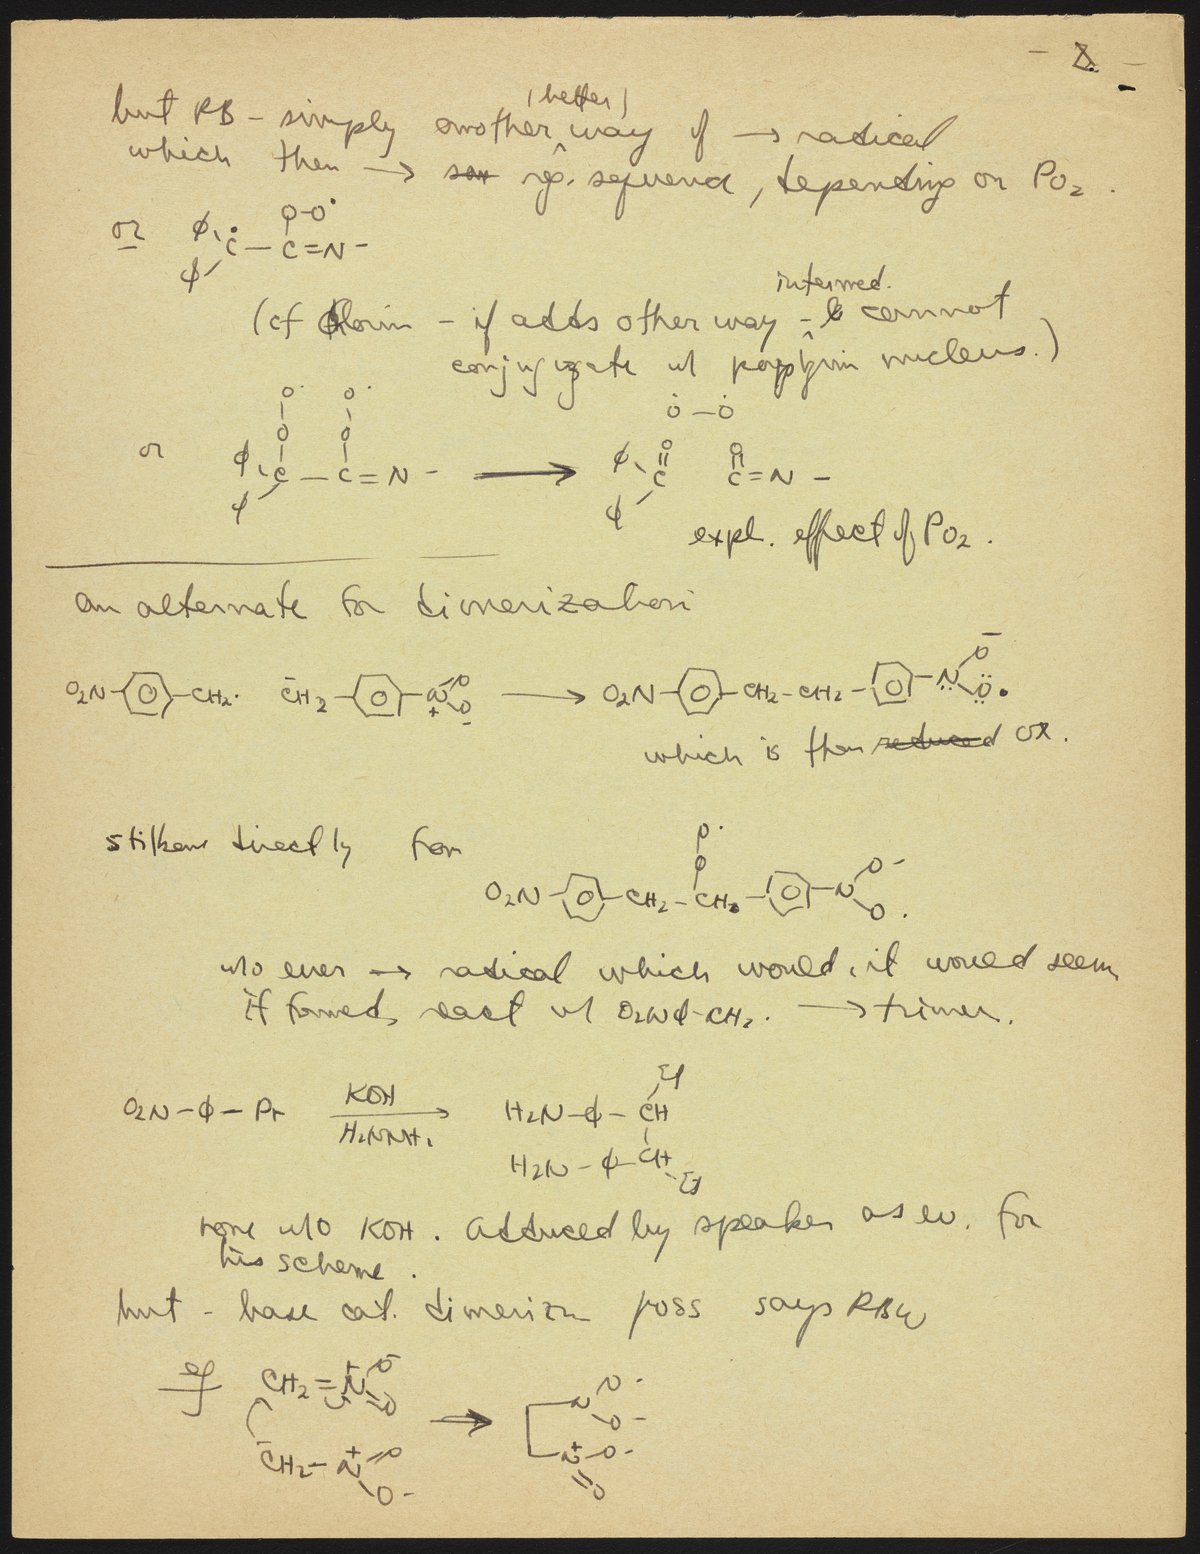 - 8. -
but RB - simply another (better) way of → radical
which then → rg. sequence, depending on PO2.
or φ φ Ċ - C=N - O-O·
(cf - if adds other way - intermed. cannot
conjugate w/ nucleus.)
O· O·
O O Ȯ-Ȯ
or φ φ C - C=N - → φ φ C=O O=C=N -
expl. effect of PO2.
an alternate for dimerization
O2N- -CH2· C̄H2- -N+ O O- → O2N- -CH2-CH2- -N O- O·
which is then reduced ox.
stilbene directly from
O·
O
O2N- -CH2-CH2- -N O- O.
w/o ever → radical which would, it would seem
if formed, react w/ O2Nφ-CH2· → trimer.
O2N-φ-Pr KOH H2NNH2 → H2N-φ-CH Et
H2N-φ-CH-Et
none w/o KOH. adduced by speaker as ev. for
his scheme.
but - base cat. dimerizn poss says RBW
CH2=N+ O- =O
C̄H2-N+ =O O- → N O· O- N+-O- =O